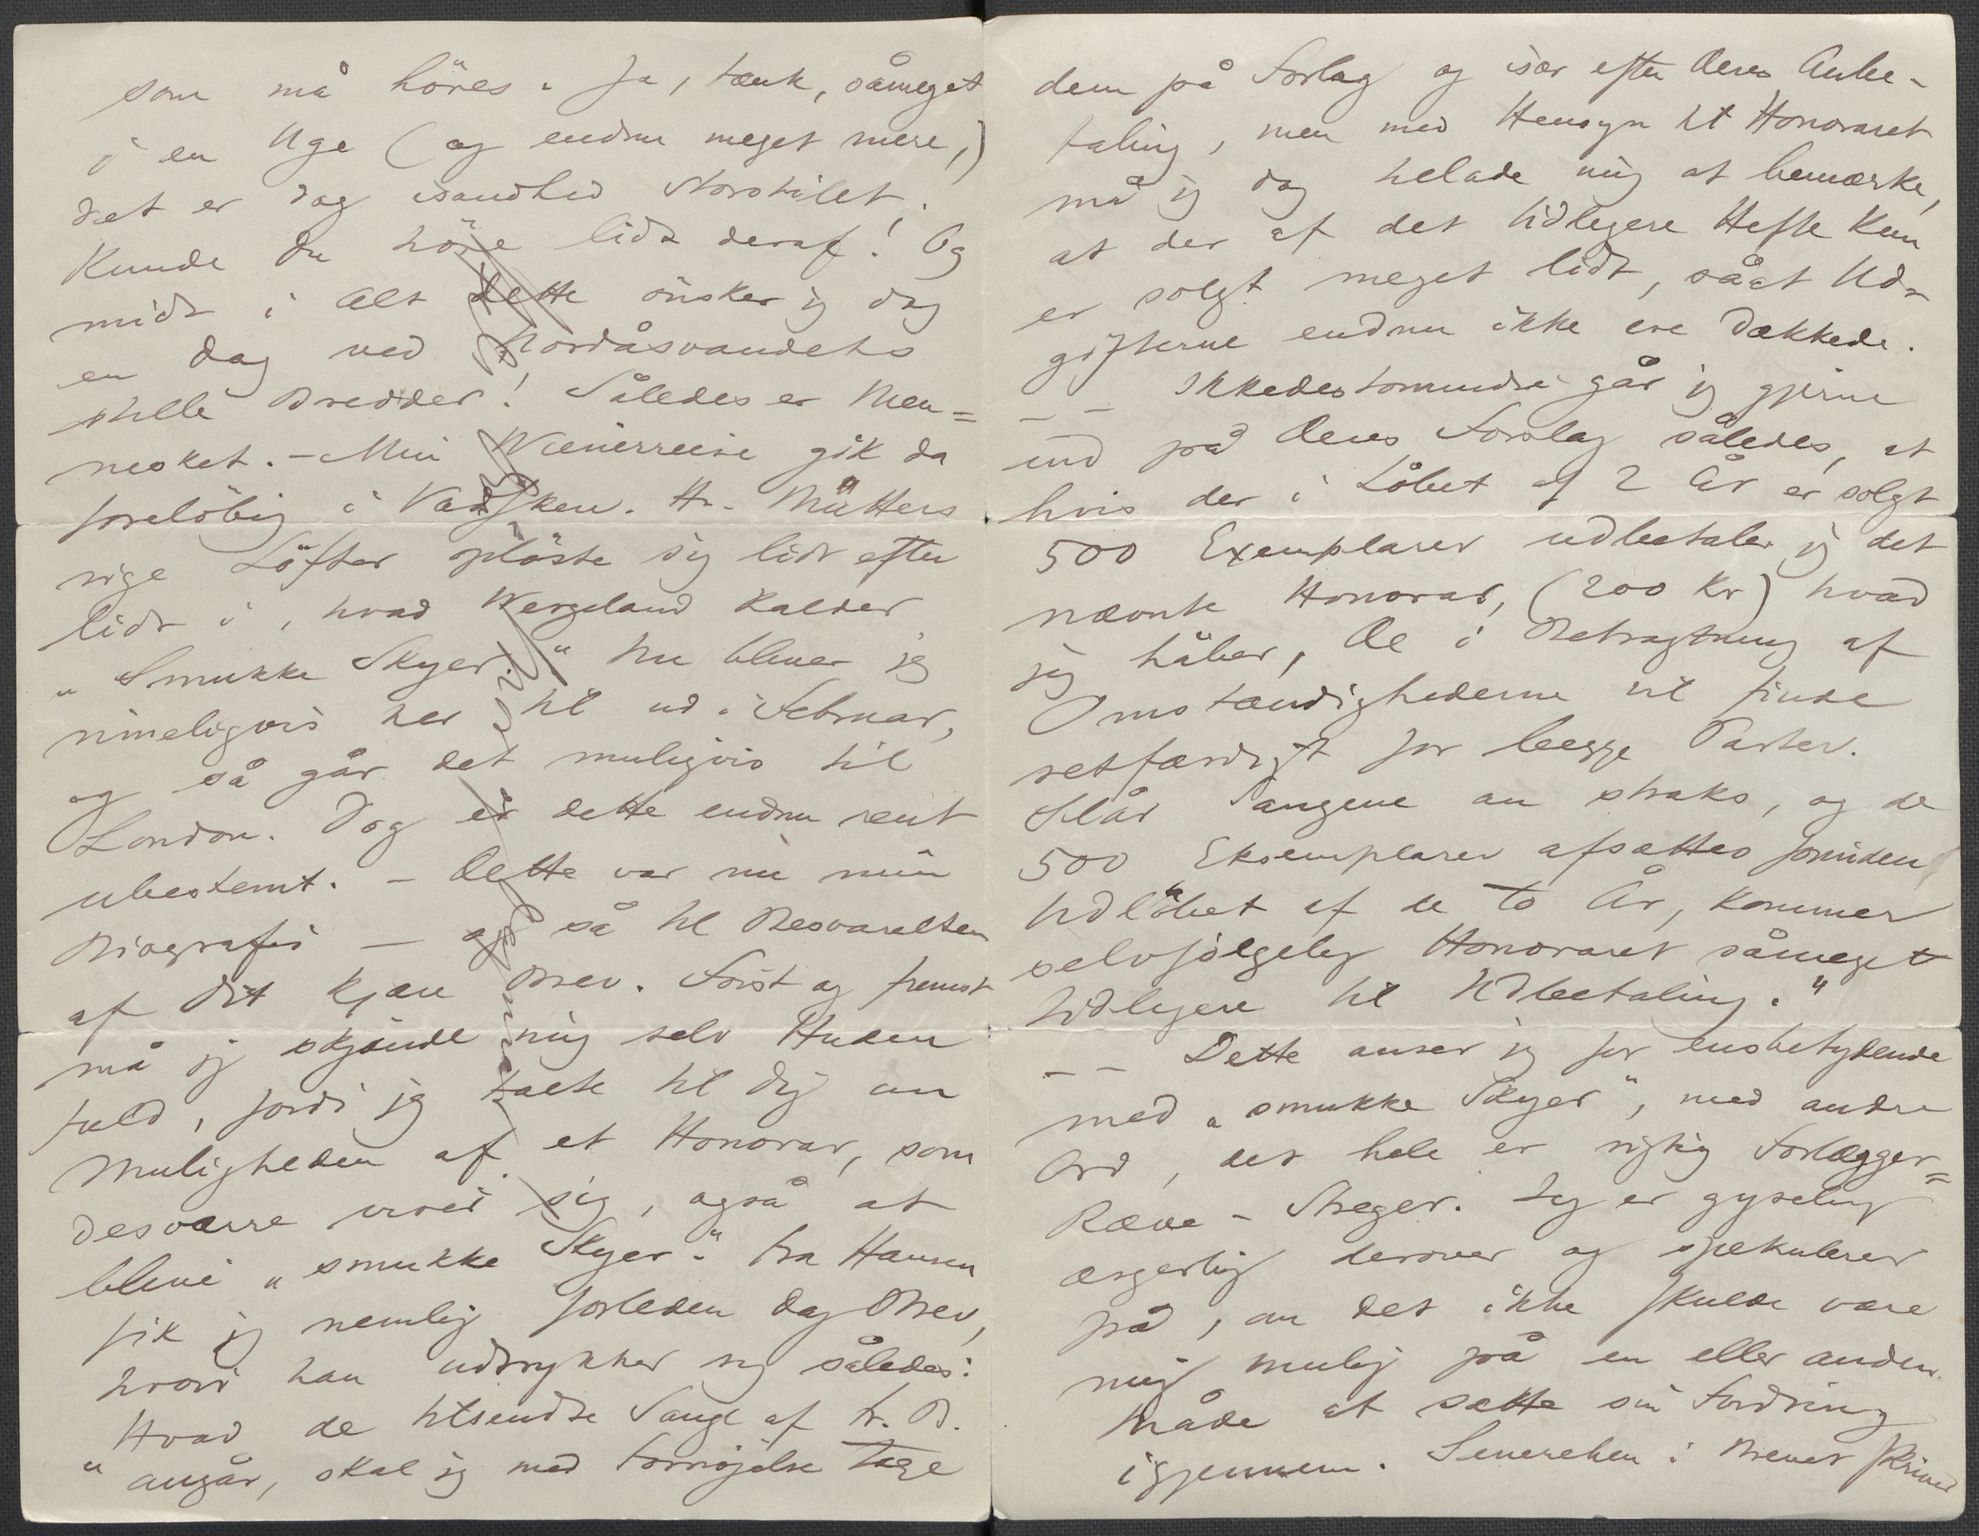 som må höres. Ja, tænk, såmeget
i en Uge (og endnu meget mere,)
det er dog isandhed storstilet.
Kunde du höre lidt deraf! Og
midt i Alt dette önsker jeg dog
en Dag ved Nordåsvandets
stille Bredder! Således er Men=
nesket. – Min Wienerreise gik da
foreløbig i Vadsken. Hr.
rige Löfter oplöste sig lidt efter
lidt i, hvad Wergeland kalder
"Smukke Skyer." Nu bliver jeg
rimeligvis her til ud i Februar,
og så går det muligvis til
London. Dog er dette endnu rent
ubestemt. – Dette var nu min
Biografi – og så til Besvarelsen
af dit kjære Brev. Först og fremst
må jeg skjænde mig selv Huden
fuld, fordi jeg talte til dig om
Muligheden af et Honorar, som
desværre viser sig, også at
blive "smukke Skyer". Fra Hansen
fik jeg nemlig forleden Dag Brev,
hvori han udtrykker sig således:
Hvad de tilsendte Sange af Fr. B.
"angår, skal jeg med Fornöjelse tage
dem på Forlag og især efter Deres Anbe-
faling, men med Hensyn til Honoraret
må jeg dog tillade mig at bemærke,
at der af det tidligere Hefte kun
er solgt meget lidt, såat Ud-
gifterne endnu ikke ere dækkede.
– – Ikkedestomindre går jeg gjerne
ind på Deres Forslag således, at
hvis der i Löbet af 2 År er solgt
500 Exemplarer udbetaler jeg det
nævnte Honorar, (200 Kr) hvad
jeg håber, De i Betragtning af
Omstændighederne vil finde
retfærdigt for begge Parter.
Slår Sangene an straks, og de
500 Eksemplarer afsættes forinden
Udlöbet af de to År, kommer
selvfölgelig Honoraret såmeget
tidligere til Udbetaling."
– – Dette anser jeg for ensbetydende
med "smukke Skyer", med andre
Ord, det hele er rigtig Forlægger=
Ræve-Streger. Jeg er gyselig
ærgerlig derover og spekulerer
på, om det ikke skulde være
mig mulig på en eller anden
Måde at sætte sin Fordring
igjennem. Senerehen i Brevet skriver